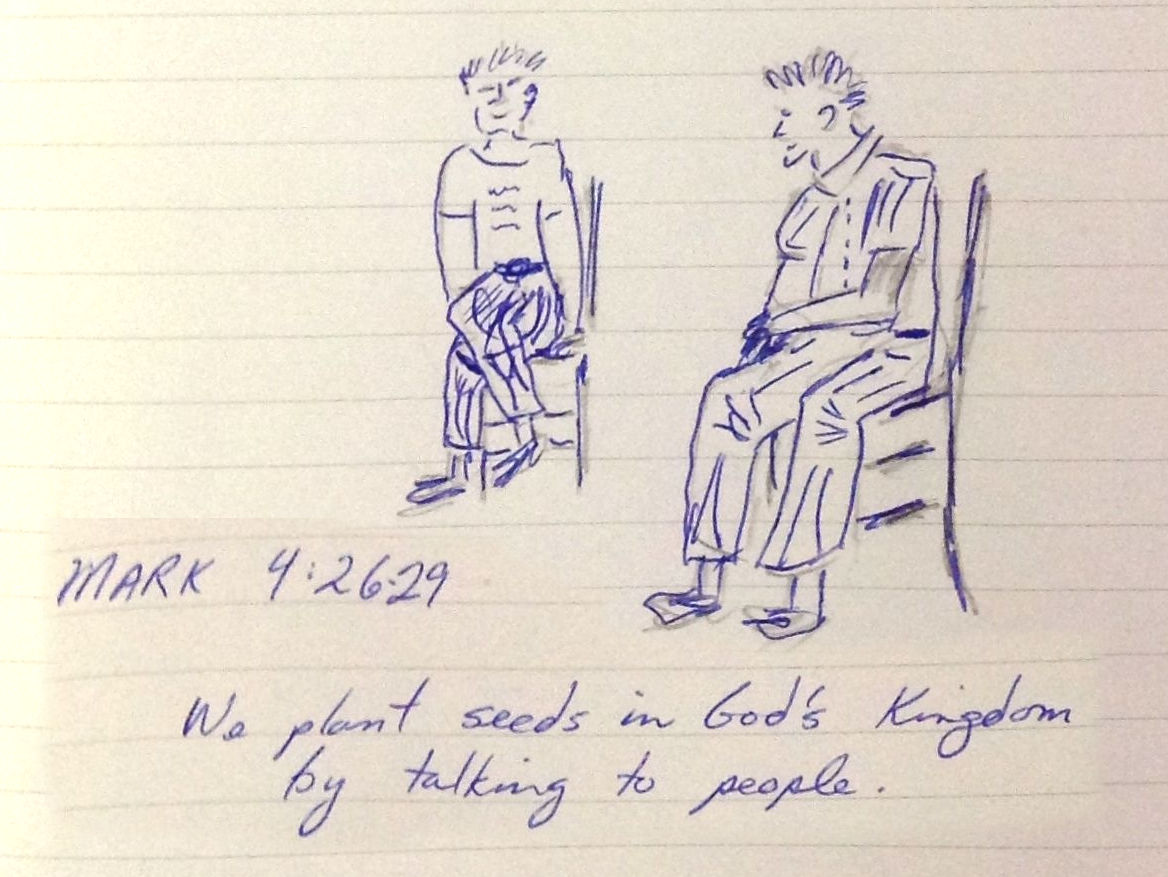 MARK 4:26-29
We plant seeds in God's Kingdom
by talking to people.